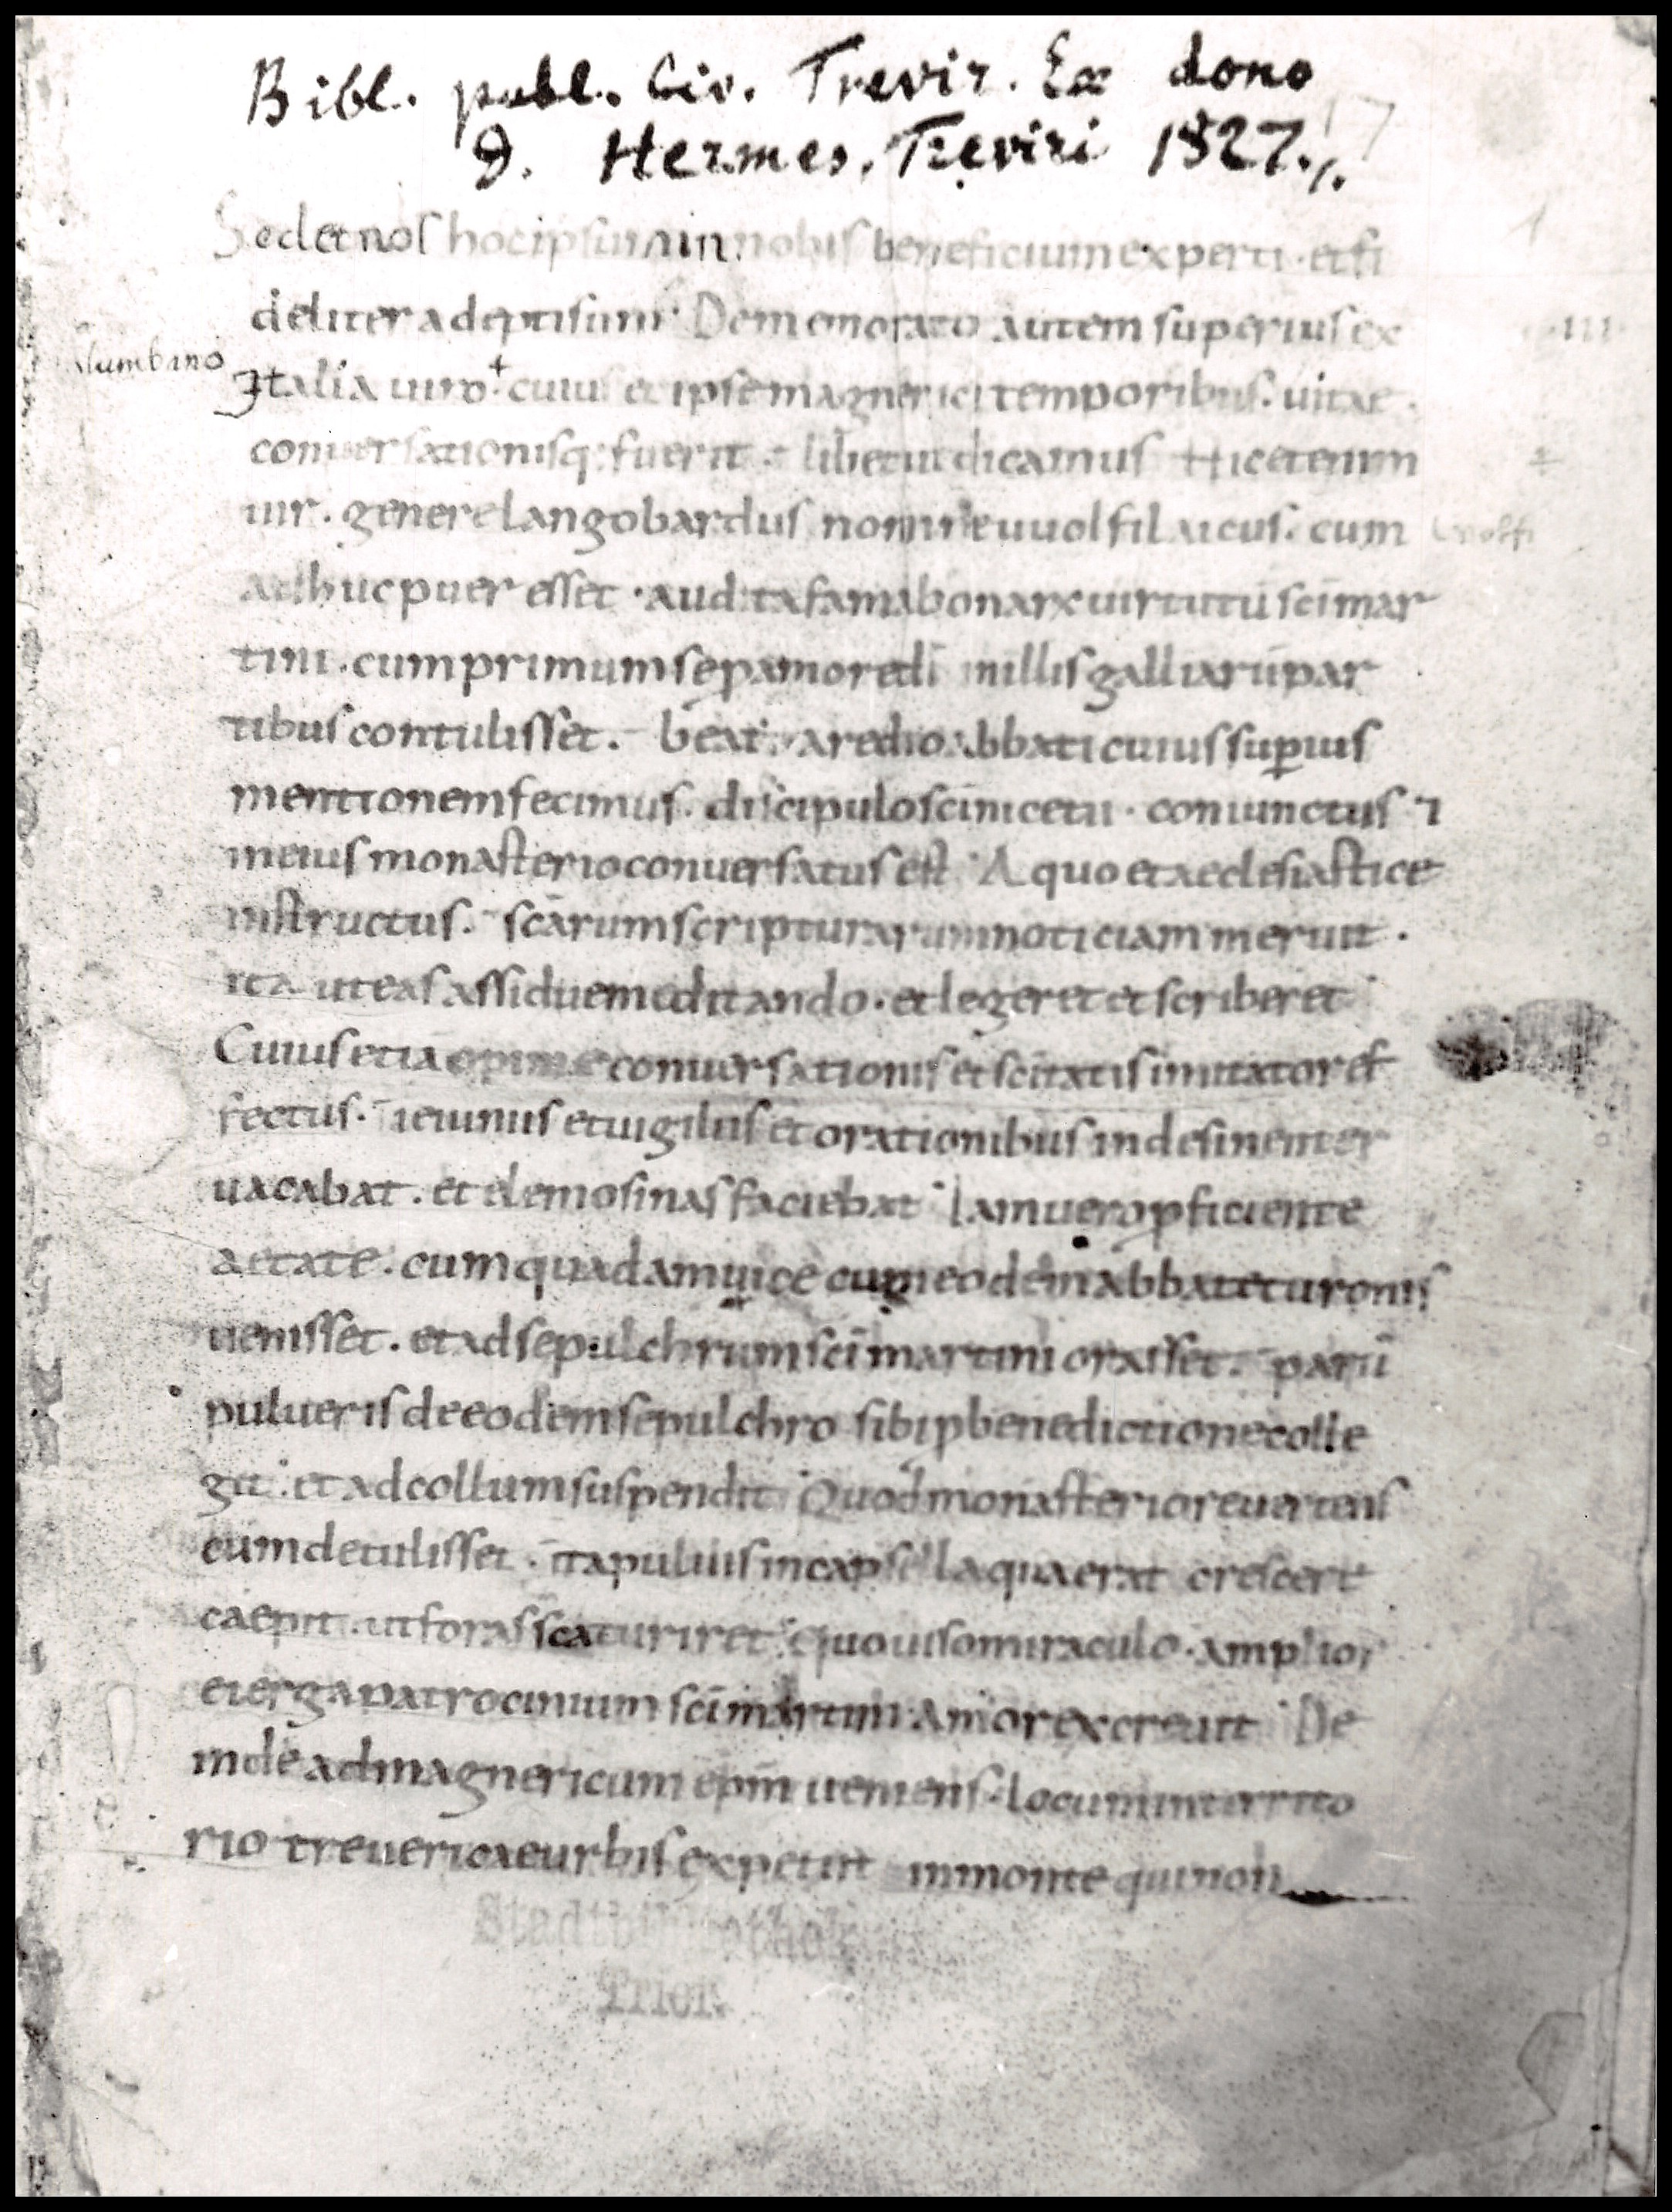 Bibl. publ. Civ. Trevir. Ex dono
D. Hermes, Treviri 1827.
Sed et nos hoc ipsum in nobis beneficium experti · et fi
deliter adepti sumꝰ Dememorato autem superius ex
lumbano
Italia uiro + cuius et ipse magnerici temporibus. uitae
conuersationisq; fuerit. libet ut dicamus Hic etenim
uir. genere langobardus nomine uuolfilaicus. cum
adhuc puer esset · audita fama bonarū uirtutū sc̄i mar
tini. cum primum se ꝑ amore dī in illis galliarū par
tibus contulisset. beato aredio abbati cuius suꝑius
mentionem fecimus. discipulo sc̄i nicetii. coniunctus ⁊
in eius monasterio conuersatus est A quo et aeclesiastice
instructus. sc̄arum scripturarum noticiam meruit.
ita ut eas assidue meditando. et legeret et scriberet
Cuius etiā opime conuersationis et sc̄itatis imitator ef
fectus. ieiuniis et uigiliis et orationibus indesinenter
uacabat. et elemosinas faciebat Iam uero ꝓficiente
aetate. cum quadam uice cum eodem abbate turonis
uenisset. et ad sepulchrum sc̄i martini orasset. parū
pulueris de eodem sepulchro sibi ꝓ benedictione colle
git. et ad collum suspendit Quod monasterio reuertens
cum detulisset. ita puluis in capsella qua erat crescere
caepit. ut foras scaturiret Quo uiso miraculo. amplior
ei erga patrocinium sc̄i martini amor excreuit De
inde ad magnericum ep̄m ueniens. locum in territo
rio treuericae urbis expetiit in monte qui non
Stadtbibliothek
Trier.